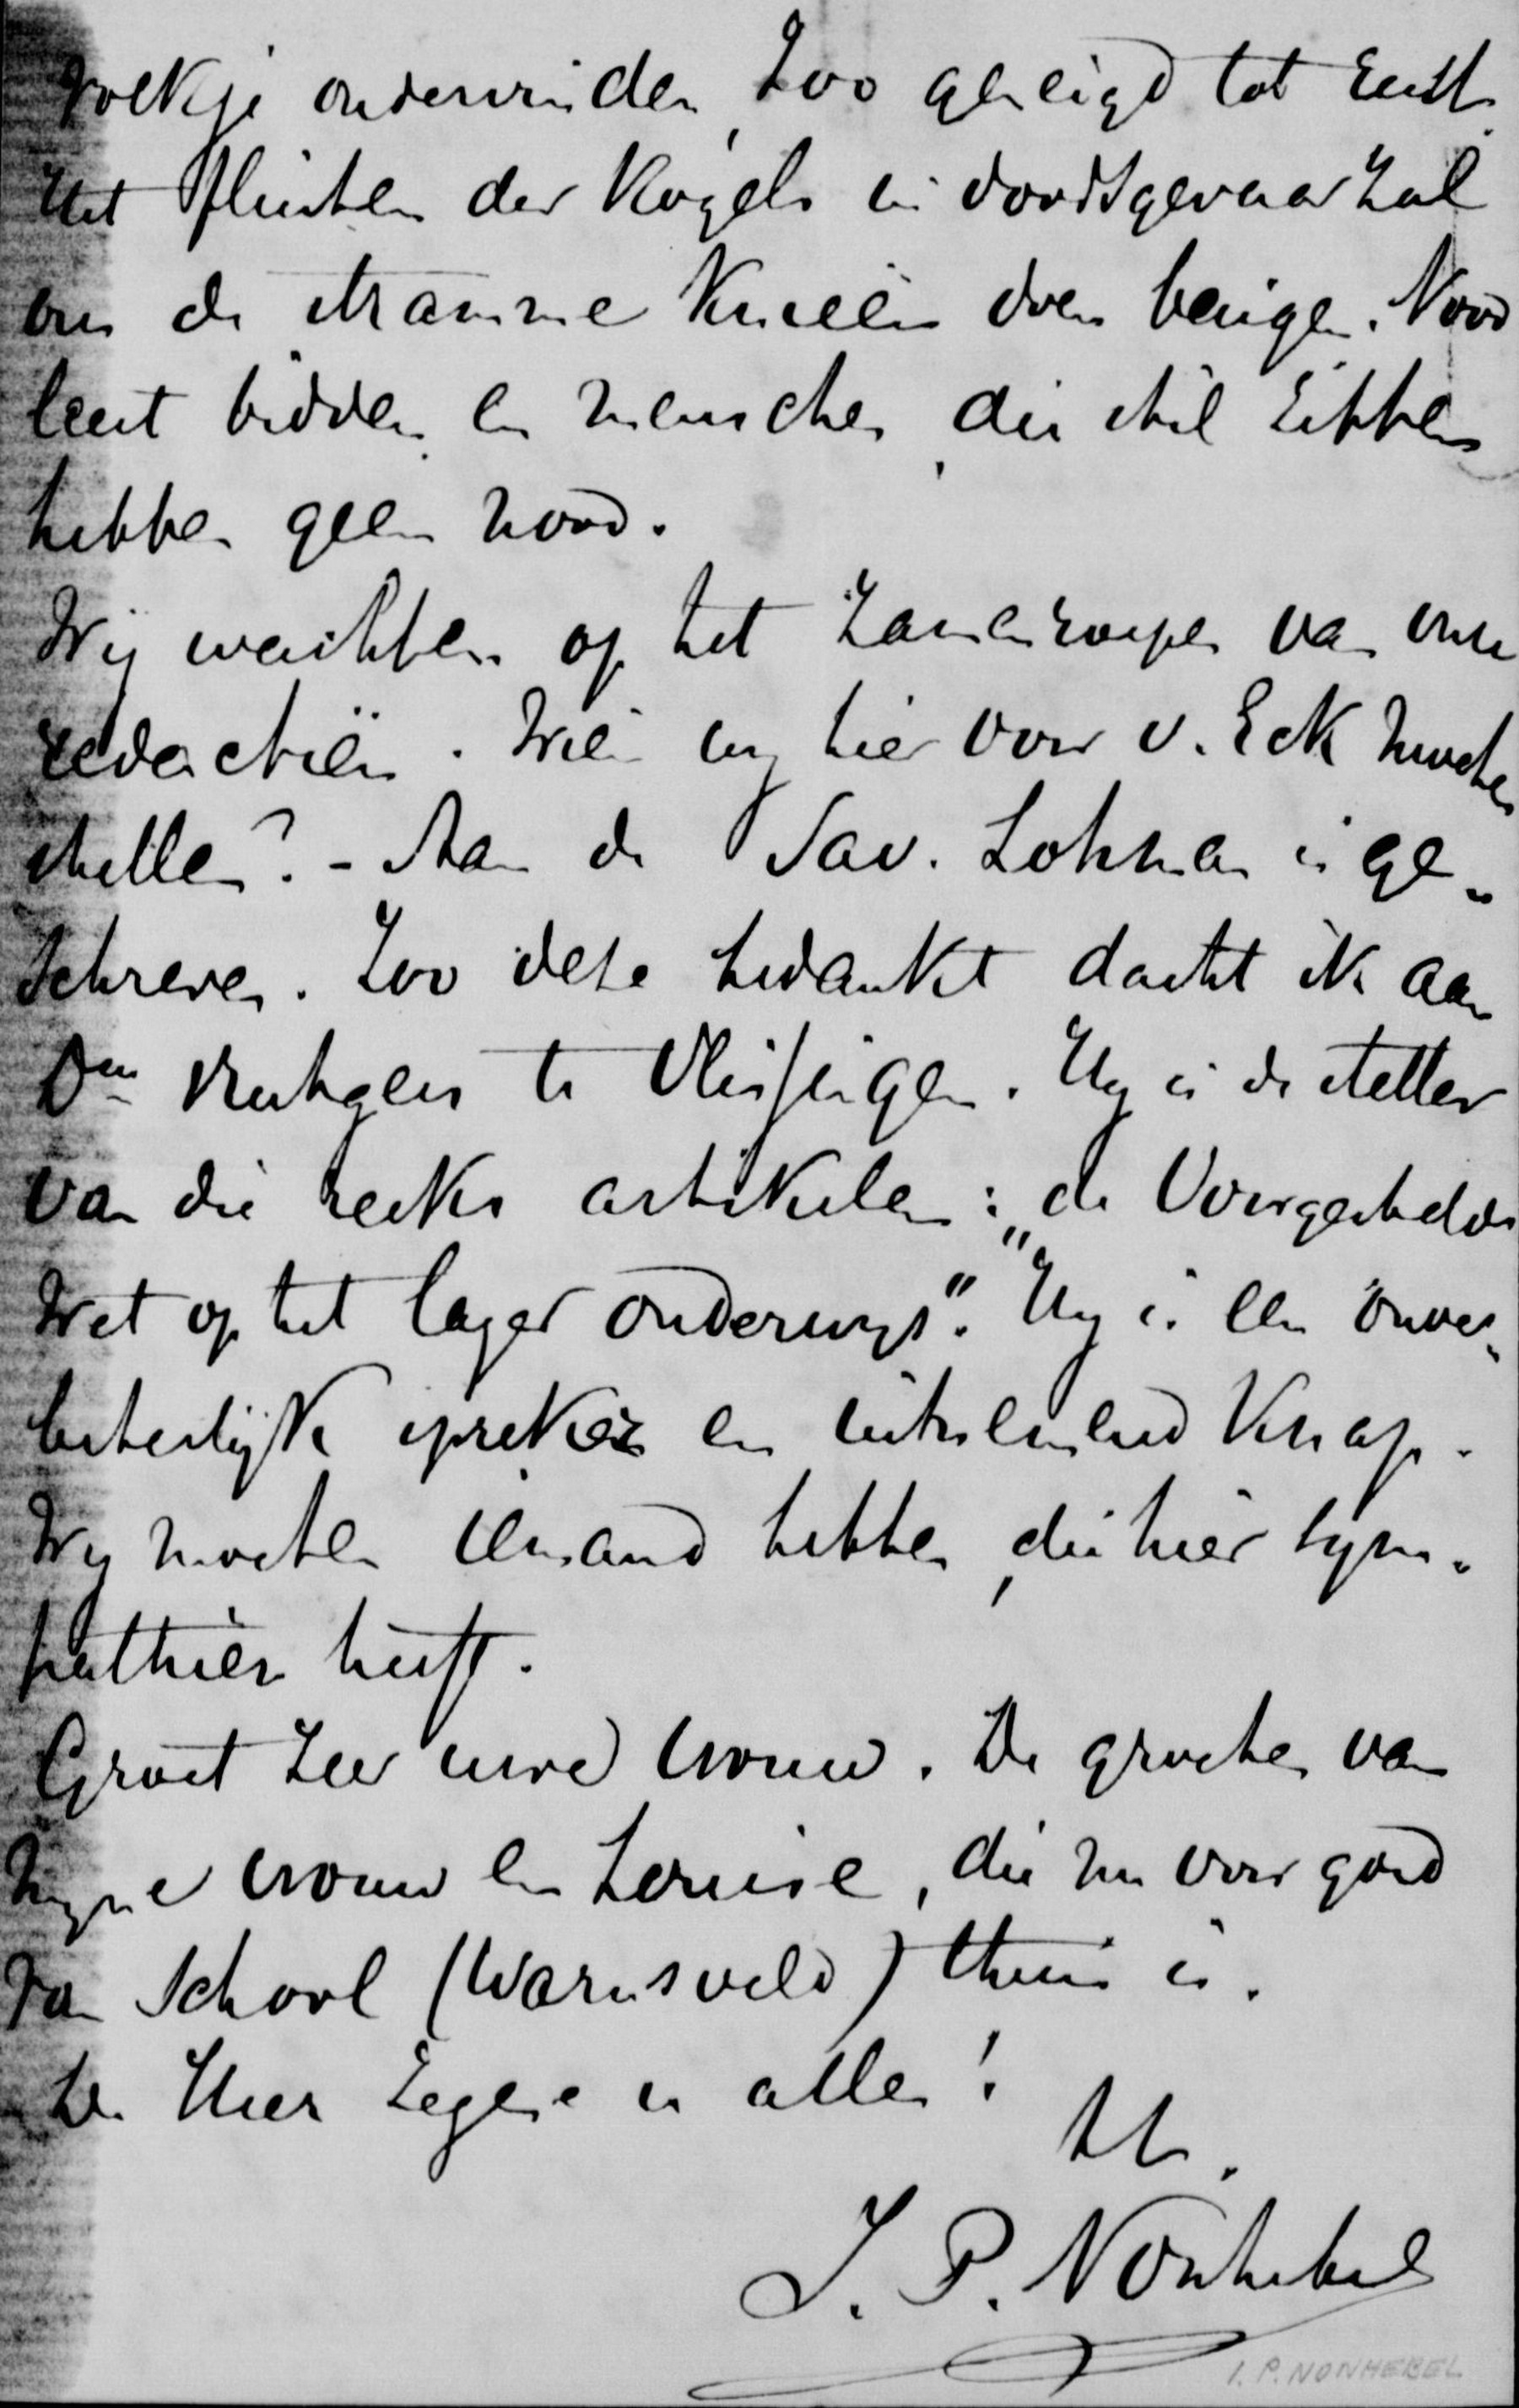 volkje ondervinden, zoo geneigd tot rust.
Het fluiten der kogels in doodsgevaar zal
ons de stramme knieën doen buigen. Nood
leert bidden en menschen, die stil zitten
hebben geen nood.
Wij wachten op het zamenroepen van onze
redactiën. Wien wij hier voor v. Eck moeten
stellen? - Aan de Sav. Lohman is ge-
schreven. Zoo deze bedankt dacht ik aan
Dm Rutgers te Vlissingen. Hij is de steller
van die reeks artikelen: „de Voorgestelde
Wet op het lager onderwijs". Hij is een onver-
beterlijk spreker en uitnemend knap.
Wij moeten iemand hebben, die hier sym-
pathiën heeft.
Groet zeer uwe vrouw. De groeten van
mijne vrouw en Louise, die nu voor goed
van school (Warnsveld) thuis is.
De Heer zegene u allen!
tt.
I. P. Nonhebel
I. P. NONHEBEL